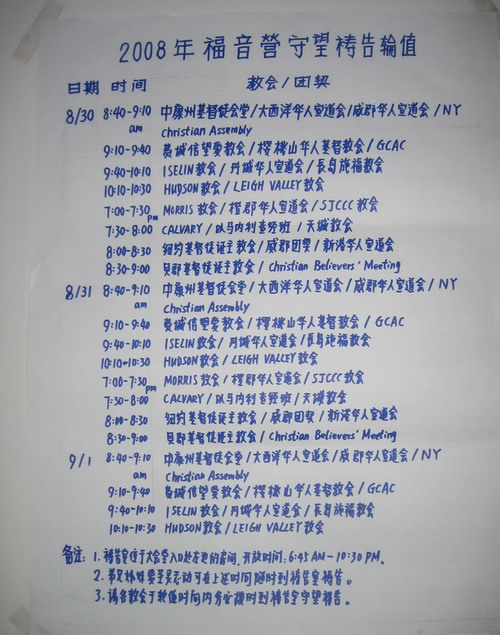 2008年福音营守望祷告轮值
日期 时间 教会/团契
8/30 8:40-9:10 am 中康州基督徒会堂/大西洋华人宣道会/威郡华人宣道会/NY
Christian Assembly
9:10-9:40 费城信望爱教会/樱桃山华人基督教会/GCAC
9:40-10:10 ISELIN教会/丹城华人宣道会/长岛施福教会
10:10-10:30 HUDSON教会/LEIGH VALLEY教会
7:00-7:30 pm MORRIS教会/樱郡华人宣道会/SJCCC教会
7:30-8:00 CALVARY/以马内利查经班/天城教会
8:00-8:30 纽约基督徒证主教会/威郡团契/新港华人宣道会
8:30-9:00 贝郡基督徒证主教会/Christian Believers' Meeting
8/31 8:40-9:10 am 中康州基督徒会堂/大西洋华人宣道会/威郡华人宣道会/NY
Christian Assembly
9:10-9:40 费城信望爱教会/樱桃山华人基督教会/GCAC
9:40-10:10 ISELIN教会/丹城华人宣道会/长岛施福教会
10:10-10:30 HUDSON教会/LEIGH VALLEY教会
7:00-7:30 pm MORRIS教会/樱郡华人宣道会/SJCCC教会
7:30-8:00 CALVARY/以马内利查经班/天城教会
8:00-8:30 纽约基督徒证主教会/威郡团契/新港华人宣道会
8:30-9:00 贝郡基督徒证主教会/Christian Believers' Meeting
9/1 8:40-9:10 am 中康州基督徒会堂/大西洋华人宣道会/威郡华人宣道会/NY
Christian Assembly
9:10-9:40 费城信望爱教会/樱桃山华人基督教会/GCAC
9:40-10:10 ISELIN教会/丹城华人宣道会/长岛施福教会
10:10-10:30 HUDSON教会/LEIGH VALLEY教会
备注: 1. 祷告室位于大会堂入口处左边的房间, 开放时间: 6:45 AM-10:30 PM.
2. 弟兄姊妹要圣灵感动可在上述时间随时到祷告室祷告。
3. 请各教会于轮值时间内务必按时到祷告室守望祷告。